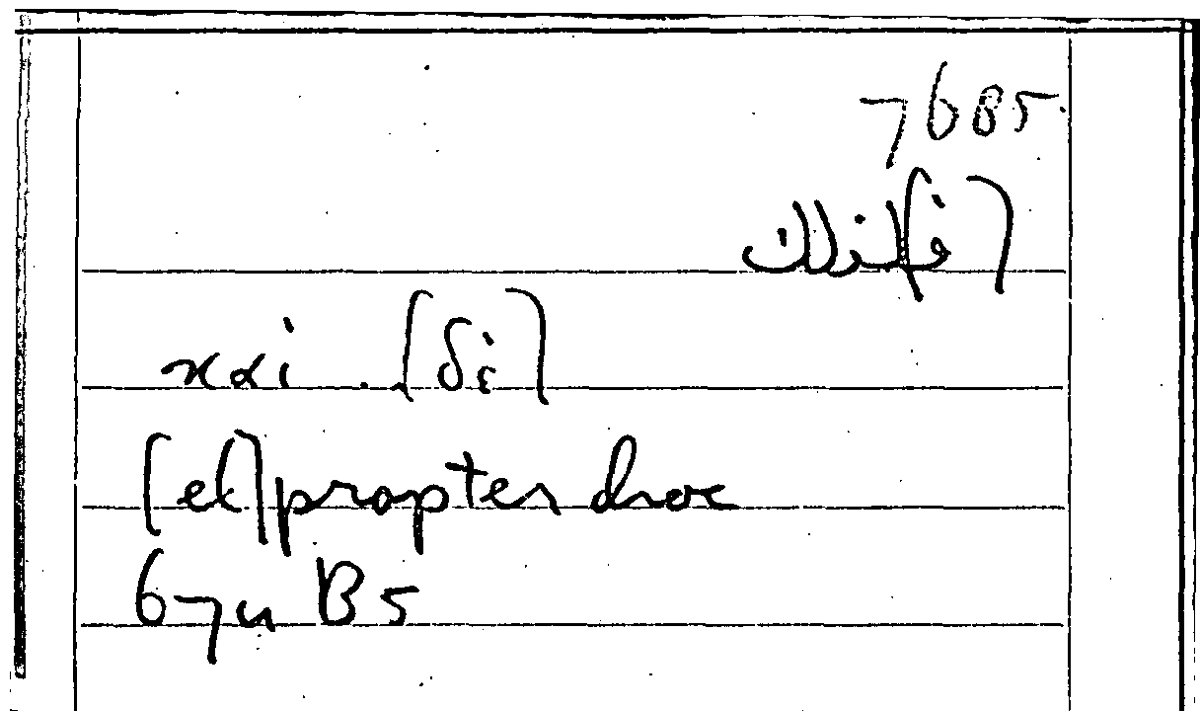 7685
[ف]لذلك
καὶ .. [δὲ]
[et] propter hoc
67a B5